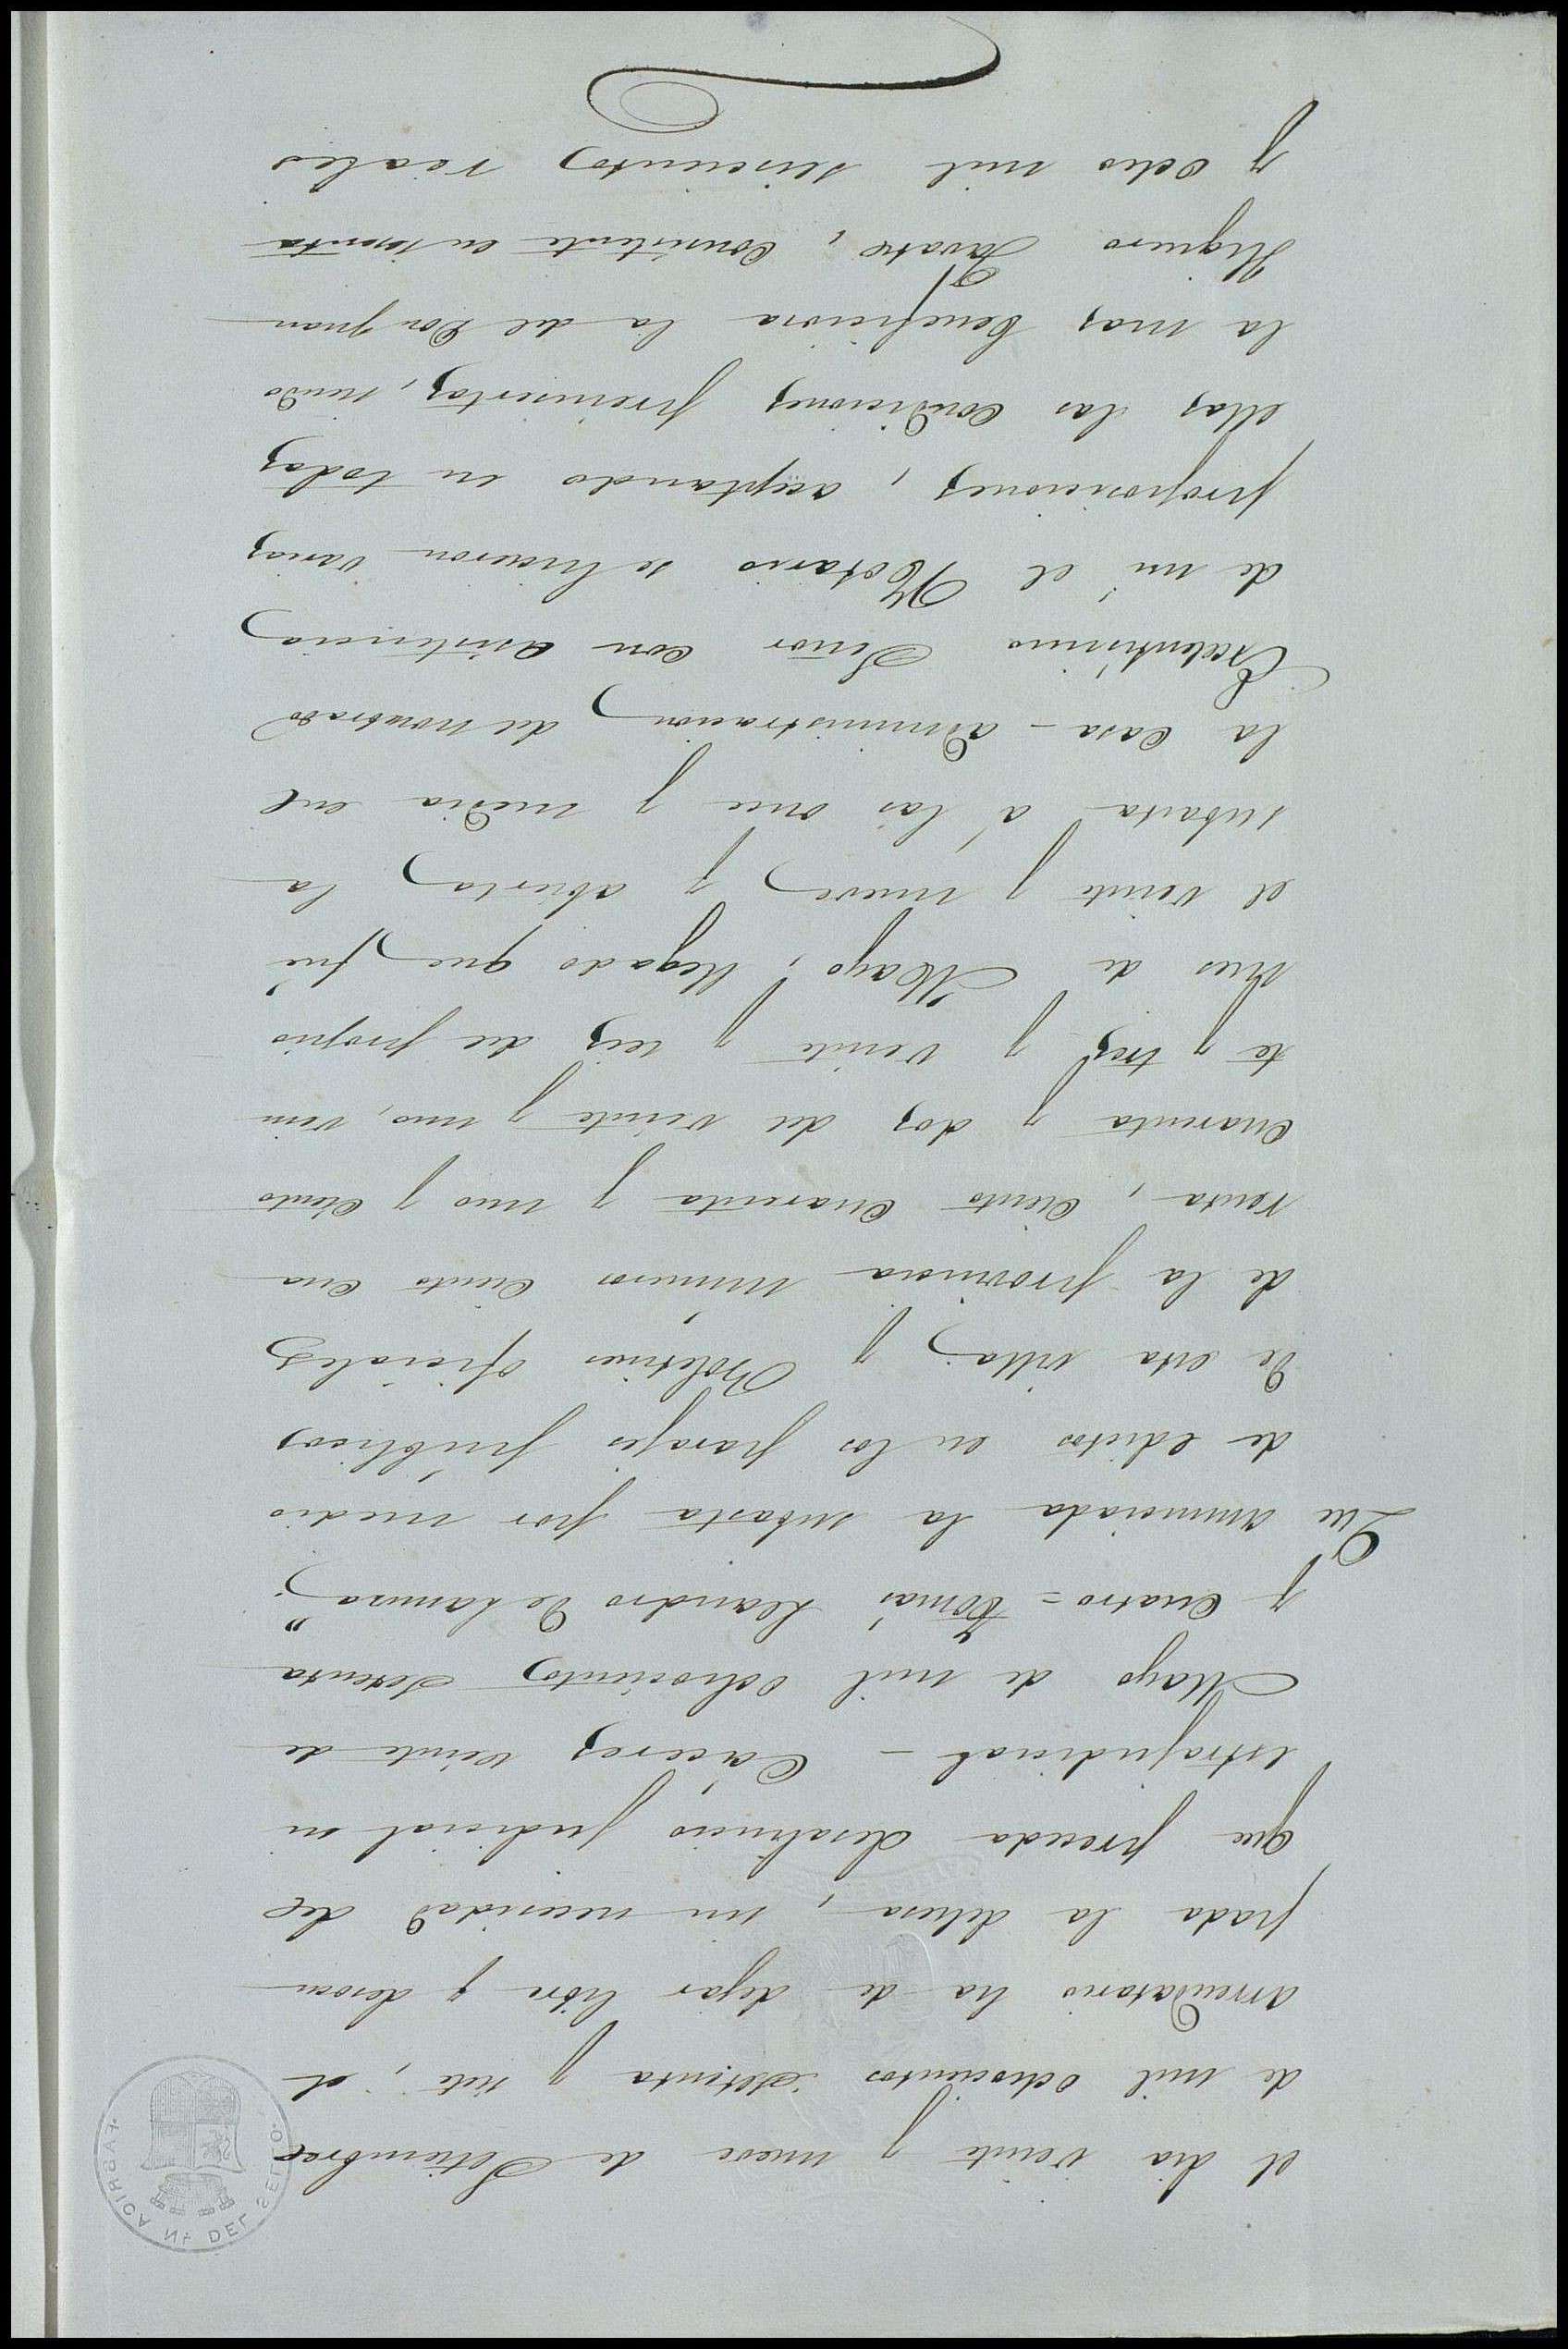 el dia veinte y nueve de Setiembre
de mil ochocientos setenta y siete, el
arrendatario ha de dejar libre y desocu
pada la dehesa, sin necesidad de
que preceda desahucio judicial ni
estrajudicial - Cáceres veinte de
Mayo de mil ochocientos setenta
y cuatro = Tomás Leandro de Lamusa"
Que anunciada la subasta por medio
de edictos en los parajes públicos
de esta villa y Boletines oficiales
de la provincia números ciento cua
renta, ciento cuarenta y uno y ciento
cuarenta y dos del veinte y uno, vein
te y tres y veinte y seis del propio
mes de Mayo, llegado que fué
el veinte y nueve y abierta la
subasta á las once y media en
la casa-administracion del nombrado
Excelentísimo Señor con asistencia
de mí el Notario se hicieron varias
proposiciones, aceptando en todas
ellas las condiciones preinsertas, siendo
la mas beneficiosa la del Don Juan
Higuero, consistente en
y ocho mil seiscientos reales
FABRICA NAL. DEL SELLO